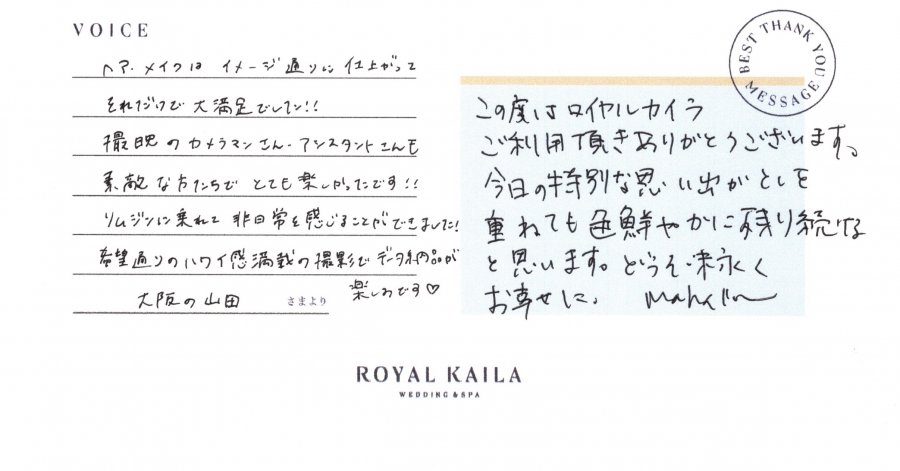 VOICE
ヘア・メイクは イメージ通りに仕上がって
それだけで大満足でした!!
撮影のカメラマンさん・アシスタントさんも
素敵な方たちで とても楽しかったです!!
リムジンに乗れて 非日常を感じることができました!
希望通りのハワイ感満載の撮影で データ納品が
楽しみです♡
大阪の山田 さまより
BEST THANK YOU MESSAGE
この度はロイヤルカイラ
ご利用頂きありがとうございます。
今日の特別な思い出がとしを
重ねても色鮮やかに残り続ける
と思います。どうぞ末永く
お幸せに。
ROYAL KAILA
WEDDING & SPA